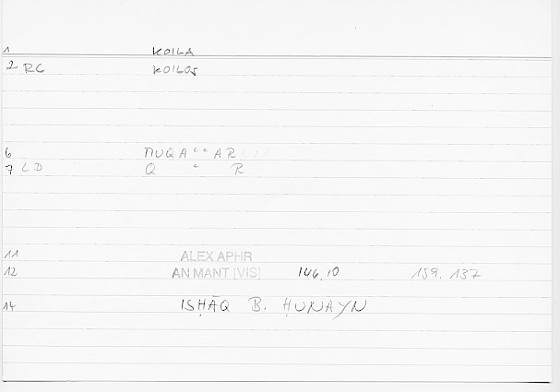 1 KOILA
2 RC KOILOS
6 MUQA““AR
7 LD Q “ R
11 ALEX APHR
12 AN MANT [VIS] 146,10 159, 137
14 ISḤĀQ B. ḤUNAYN